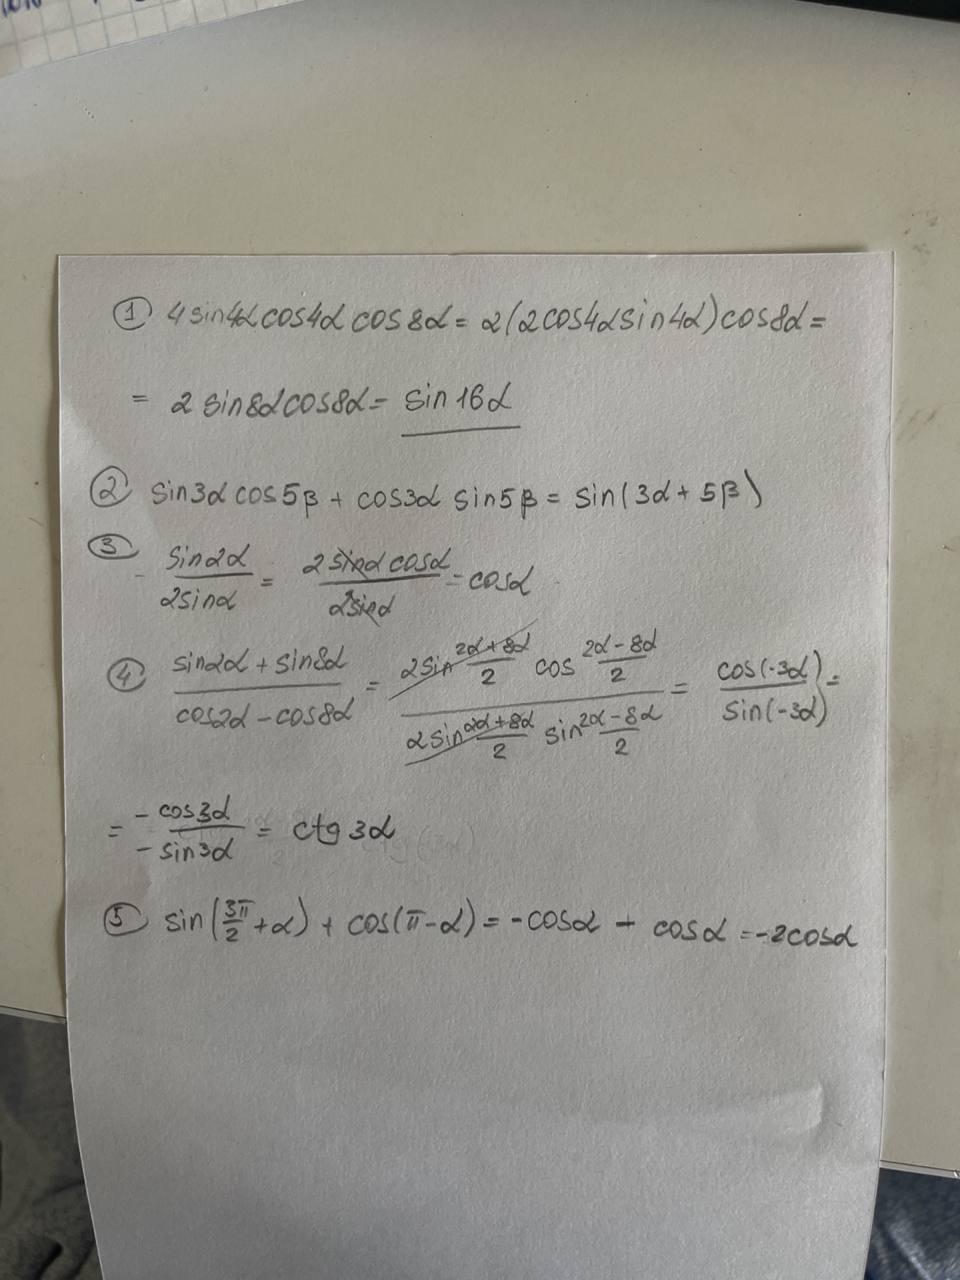 ① 4sin4α cos4α cos8α = 2(2cos4α sin4α)cos8α =
= 2 sin8α cos8α = sin16α
② sin3α cos5β + cos3α sin5β = sin(3α + 5β)
③ sin2α/2sinα = 2sinα cosα/2sinα = cosα
④ sin2α + sin8α/cos2α - cos8α = 2sin 2α+8α/2 cos 2α-8α/2 / 2sin 2α+8α/2 sin 2α-8α/2 = cos(-3α)/sin(-3α) =
= -cos3α/-sin3α = ctg3α
⑤ sin(3π/2 + α) + cos(π - α) = -cosα - cosα = -2cosα